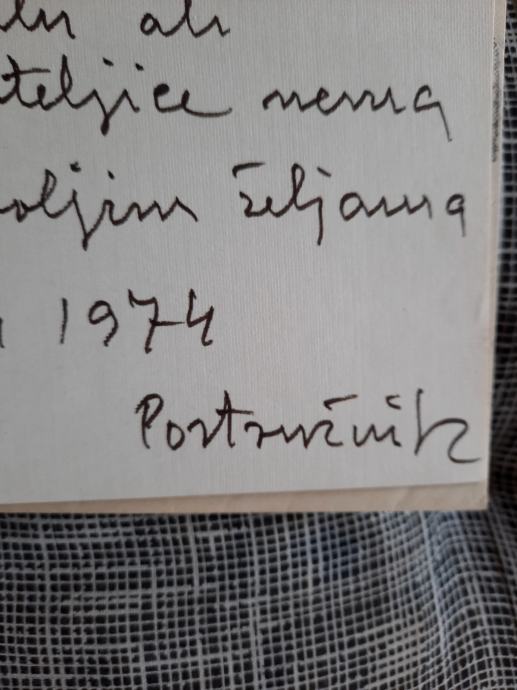 ali
teljice nema
oljim željama
1974
Postružnik